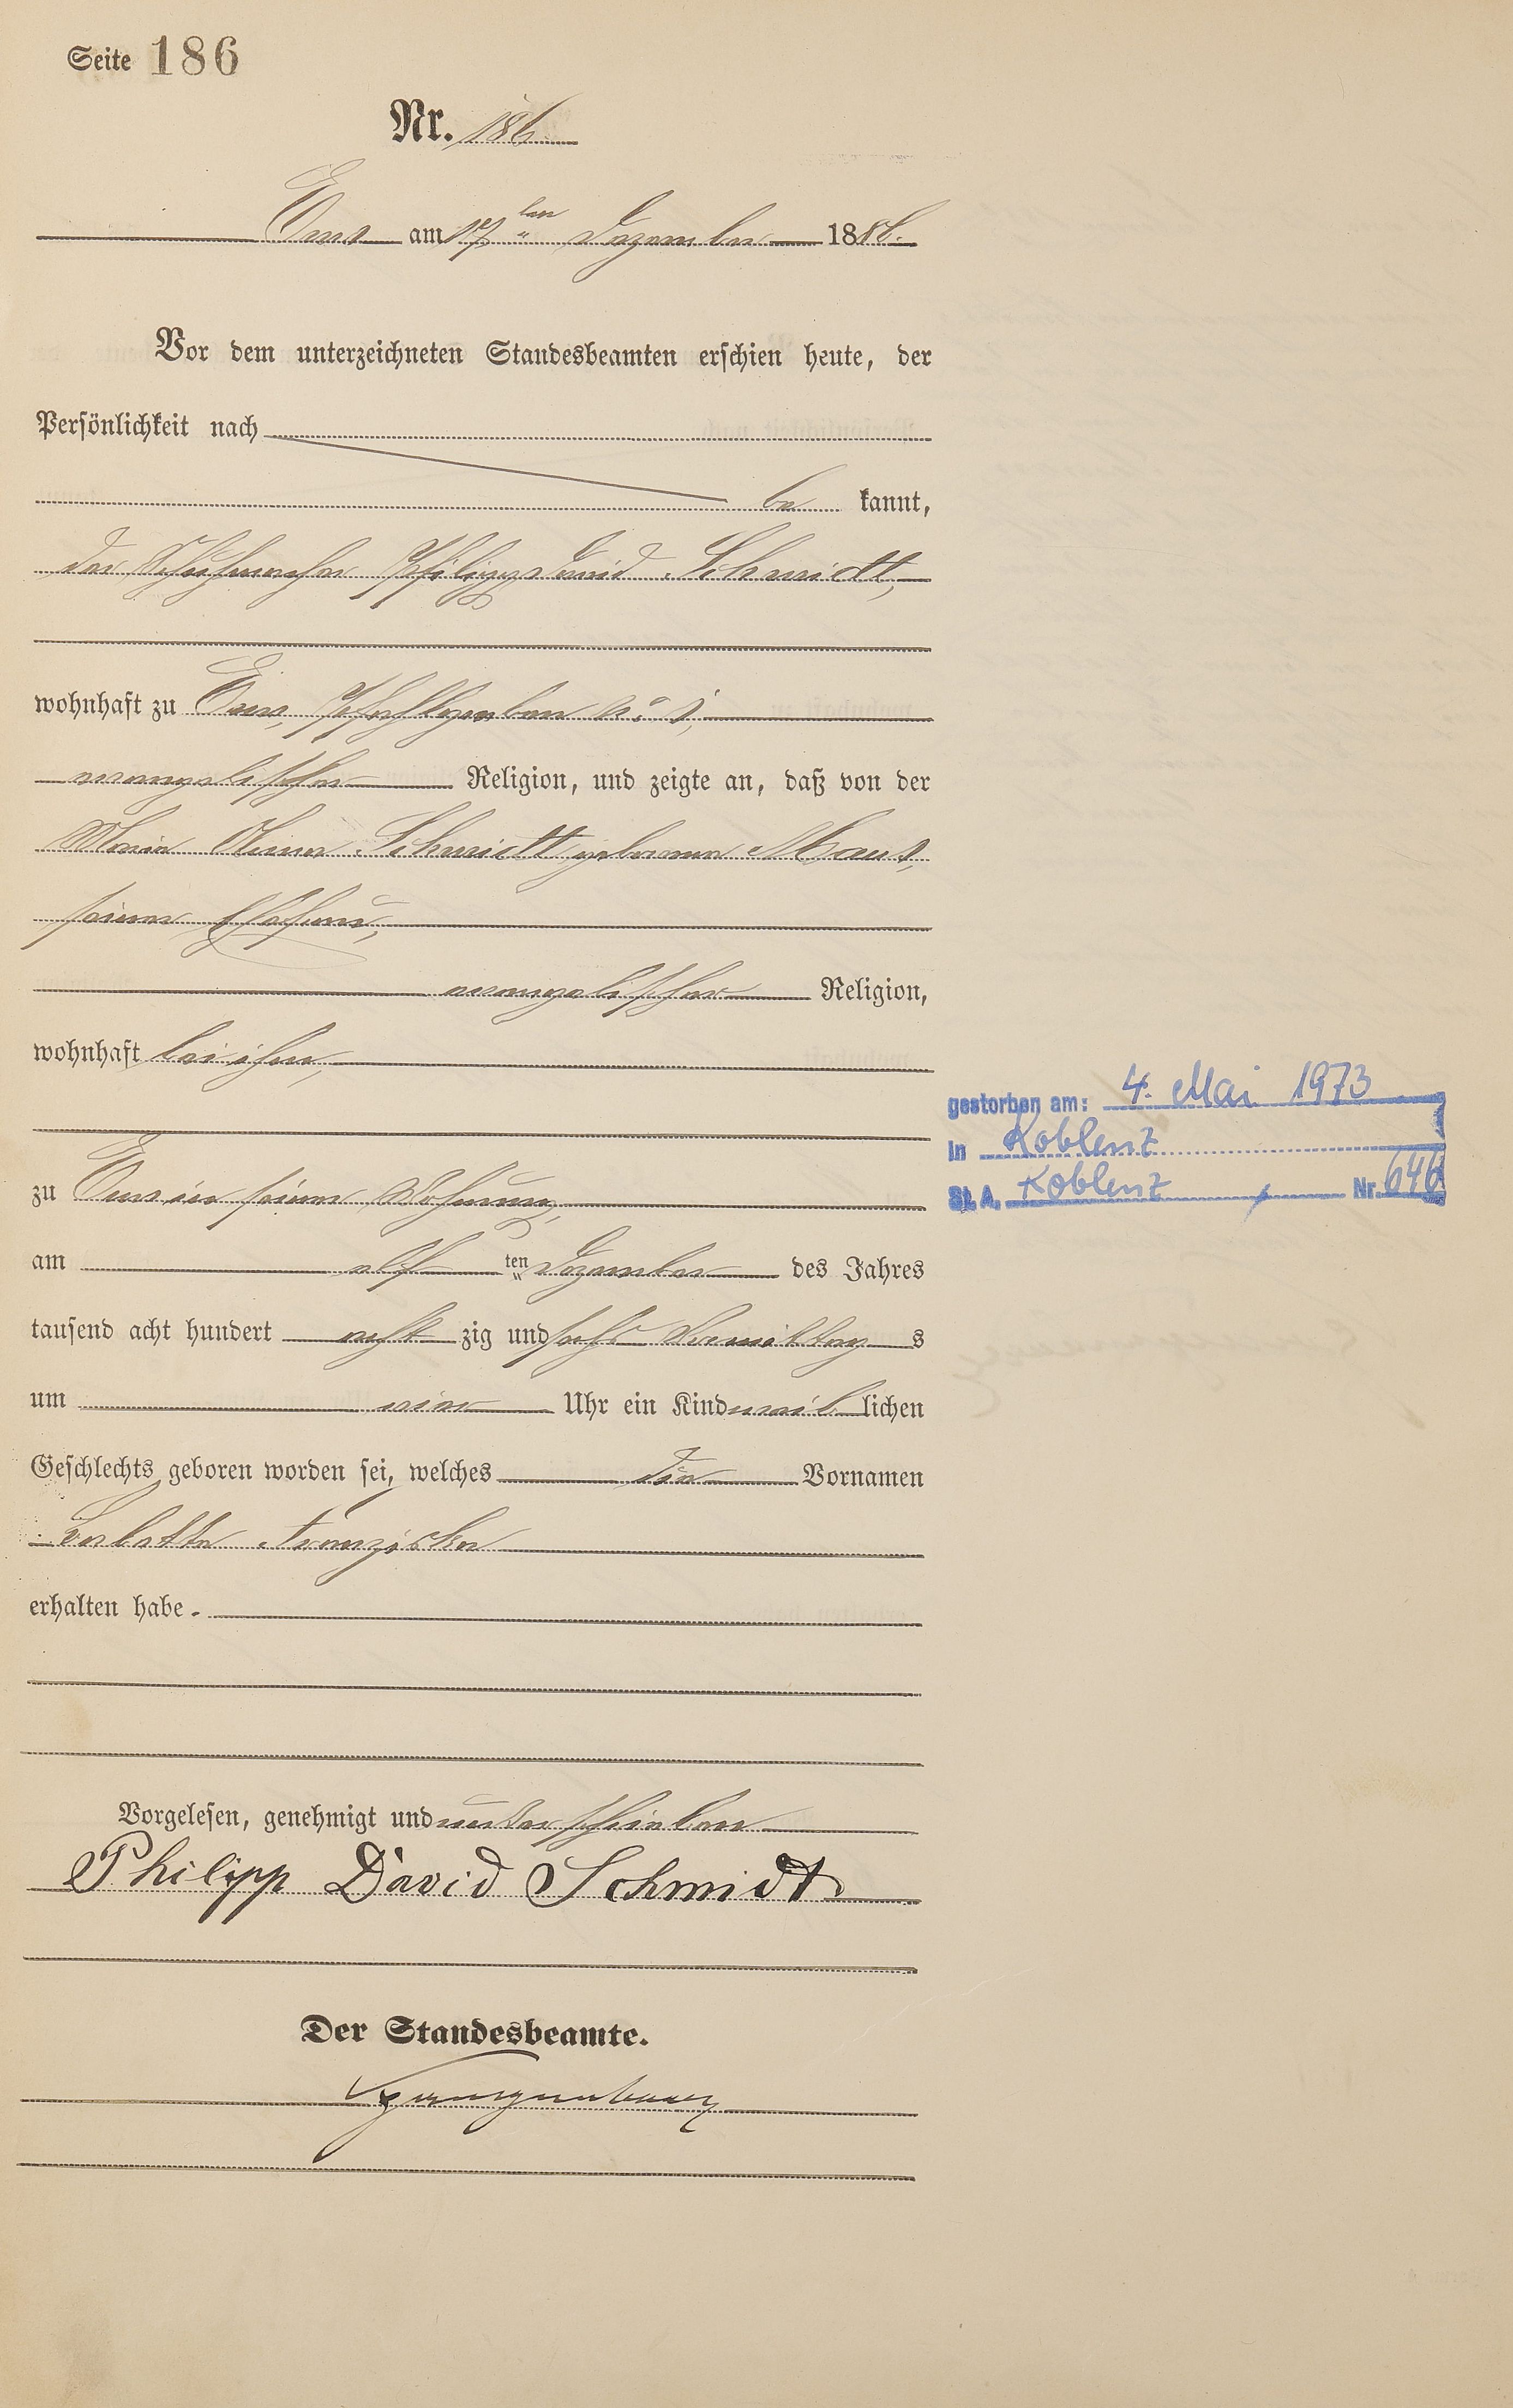 Seite 186
Nr. 186
Ems am 17ten Dezember 1886.
Vor dem unterzeichneten Standesbeamten erschien heute, der
Persönlichkeit nach
be kannt,
der Schuhmacher Philipp David Schmidt,
wohnhaft zu Ems, Pfahlgraben No
evangelischer Religion, und zeigte an, daß von der
Maria Schmidt geborene Maus,
seiner Ehefrau,
evangelischer Religion,
wohnhaft bei ihm,
gestorben am: 4. Mai 1973
in Koblenz
St. A. Koblenz, Nr. 646
zu Ems in seiner Wohnung,
am elf ten Dezember des Jahres
tausend acht hundert acht zig und sechs Vormittag s
um vier Uhr ein Kind weib lichen
Geschlechts geboren worden sei, welches die Vornamen
Franziska
erhalten habe.
Vorgelesen, genehmigt und unterschrieben
Philipp David Schmidt
Der Standesbeamte.